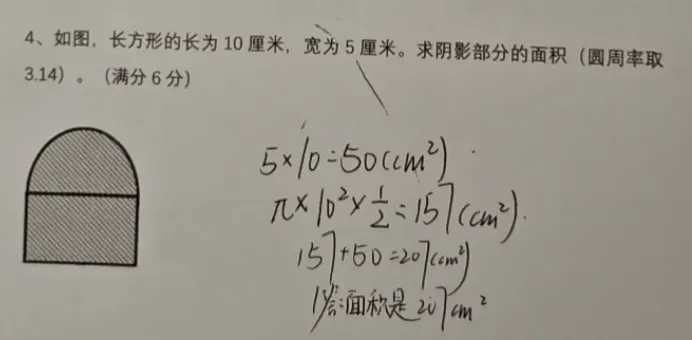 4、如图，长方形的长为 10 厘米，宽为 5 厘米。求阴影部分的面积（圆周率取
3.14）。（满分 6 分）
5×10=50(cm²)
π×10²×1/2=157(cm²).
157+50=207(cm²)
答:面积是207cm²